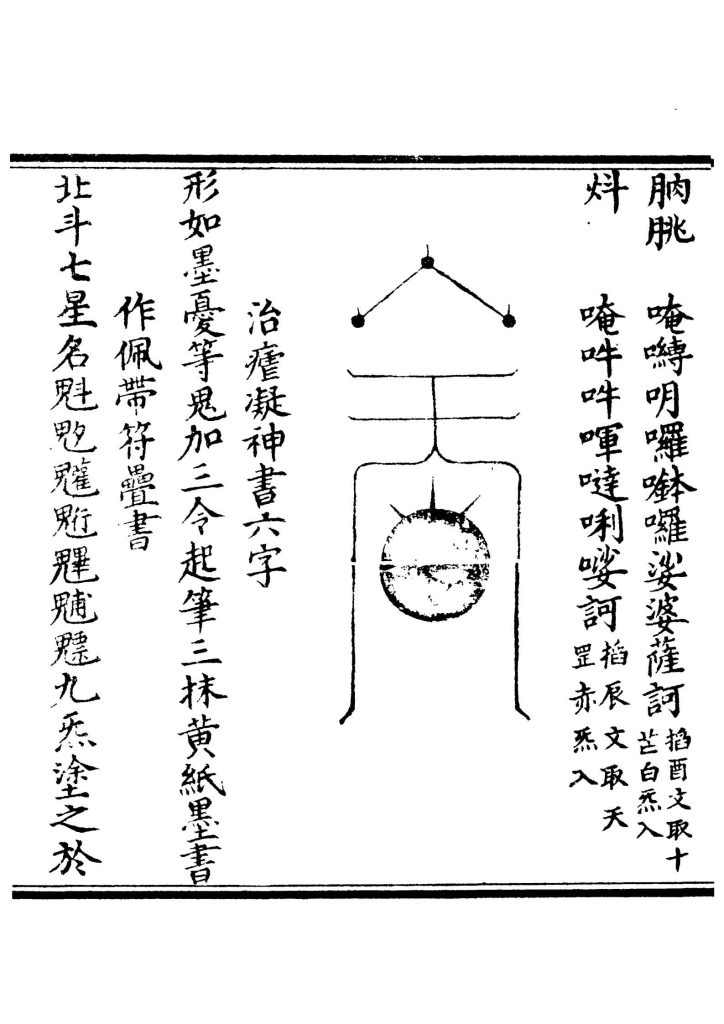 朒朓　唵嚩明囉㘄囉娑婆薩訶 掐酉文取十
芒白炁入
㪵　唵吽吽㖶噠唎娑訶 掐辰文取天
罡赤炁入
治瘧凝神書六字
形如墨憂等鬼加三令起筆三抹黃紙墨書
作佩帶符疊書
北斗七星名魁䰢䰣魓䰡九炁塗之於